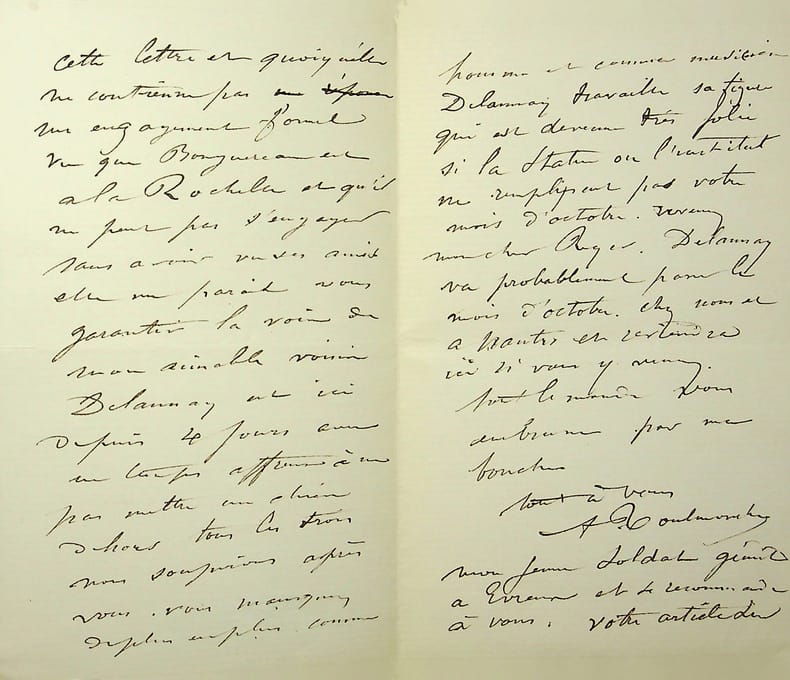 cette lettre et quoiqu'elle
ne contienne pas
un engagement formel
vu que Bouguereau est
a la Rochelle et qu'il
ne peut pas s'engager
sans avoir vu ses amis
elle me parait vous
garantir la voix de
mon aimable voisin
Delaunay est ici
depuis 4 jours avec
un temps affreux à ne
pas mettre un chien
dehors tous les trois
nous soupirons après
vous. vous manquez
de plus en plus comme
homme et comme musicien
Delaunay travaille sa figure
qui est devenue très jolie
si la statue ou l'institut
ne remplissent pas votre
mois d'octobre. venez
mon cher Roger. Delaunay
va probablement passer le
mois d'octobre. chez nous et
a Nantes et reviendra
ici si vous y venez.
tout le monde vous
embrasse par ma
bouche
tout à vous
A Toulmouche
mon jeune soldat gémit
a Evreux et se recommande
à vous. votre article du